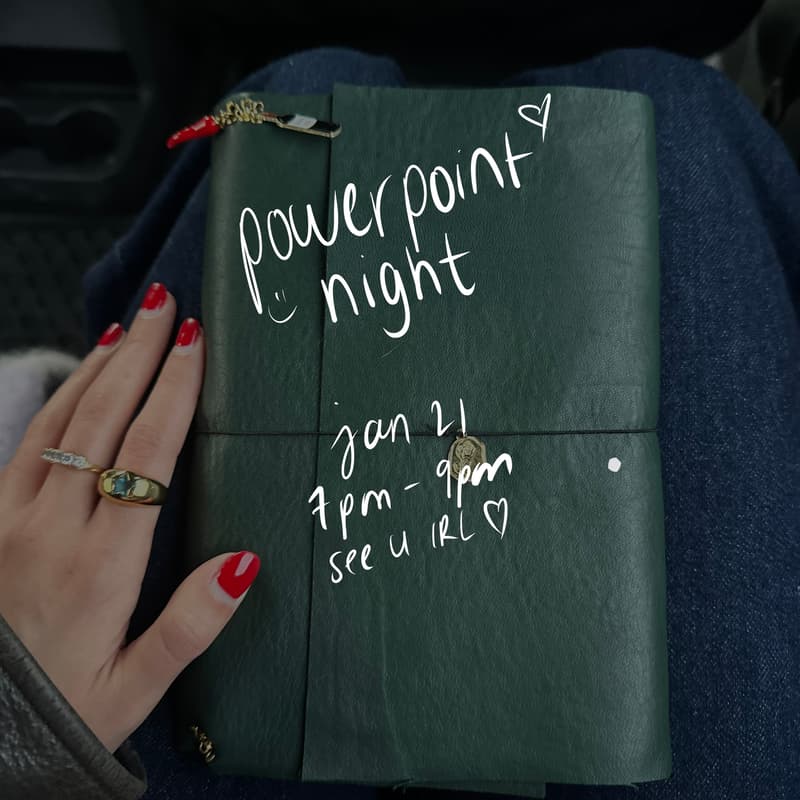 powerpoint
night
jan 21
7pm - 9pm
see u IRL